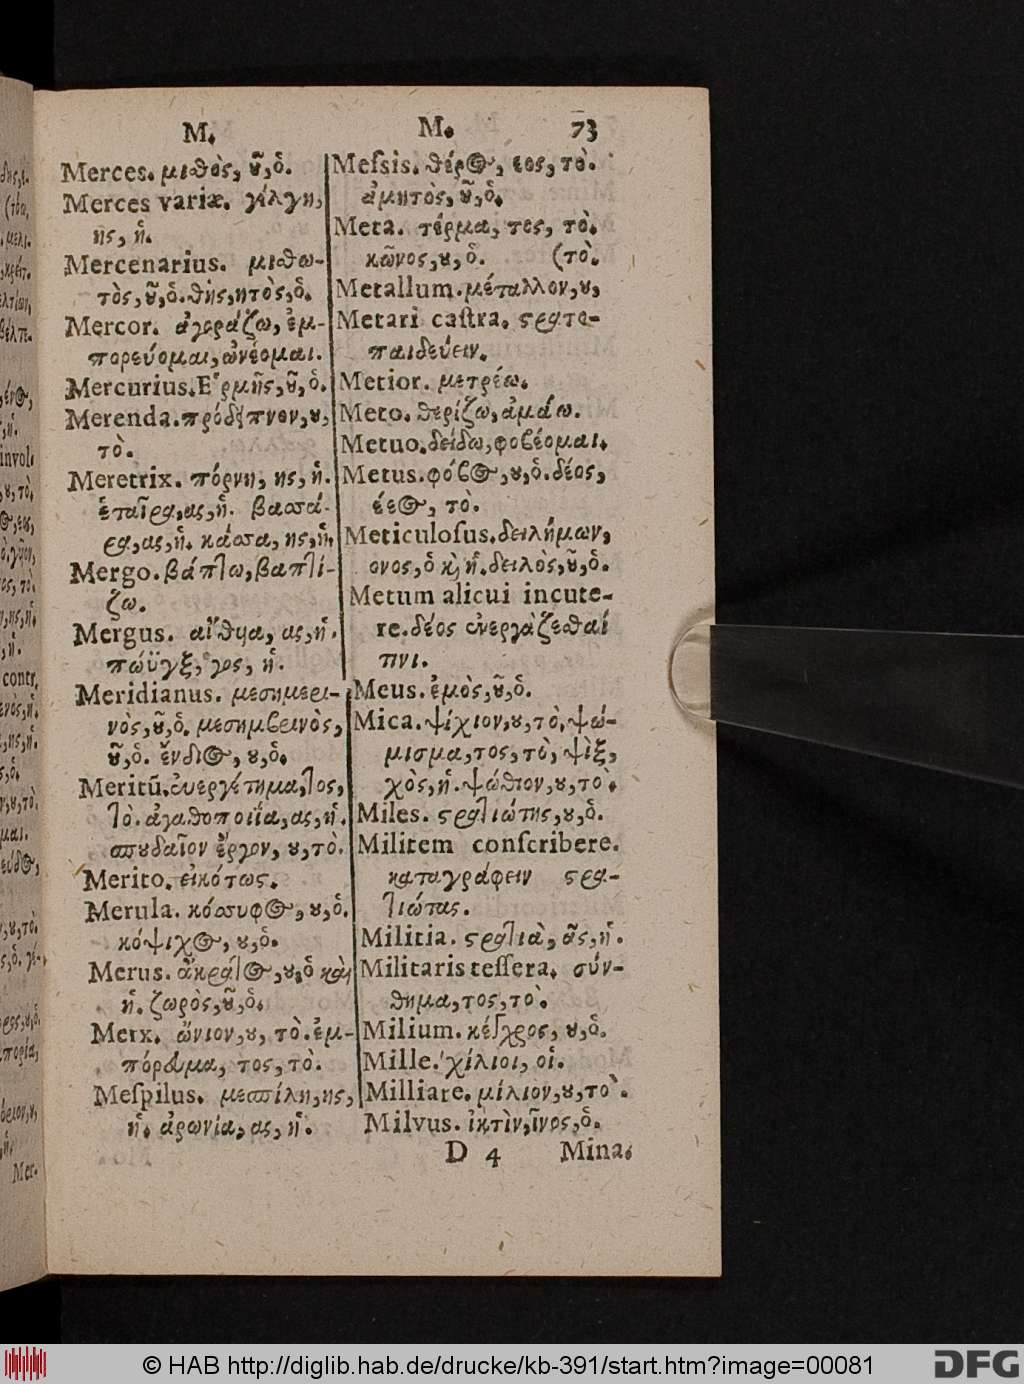 M.
Merces. μιϑὸς, ȣ͂, ὁ.
Merces variæ. γέλγη,
ης, ἡ.
Mercenarius. μιϑω-
τὸς, ȣ͂, ὁ. ϑὴς, ητὸς, ὁ.
Mercor. ἀγοράζω, ἐμ-
πορεύομαι, ὠνέομαι.
Mercurius. Ἑρμῆς, ȣ͂, ὁ.
Merenda. πρόδειπνον, ȣ,
τὸ.
Meretrix. πόρνη, ης, ἡ.
ἑταῖρα, ας, ἡ. βασσά-
ρα, ας, ἡ. κάσσα, ης, ἡ.
Mergo. βάπτω, βαπτί-
ζω.
Mergus. αἴϑυα, ας, ἡ.
πώϋγξ, γος, ἡ.
Meridianus. μεσημερι-
νὸς, ȣ͂, ὁ. μεσημβρινὸς,
ȣ͂, ὁ. ἔνδιος, ȣ, ὁ.
Meritũ. ἐυεργέτημα, τος,
τὸ. ἀγαϑοποιΐα, ας, ἡ.
σπȣδαῖον ἔργον, ȣ, τὸ.
Merito. εἰκότως.
Merula. κόσσυφος, ȣ, ὁ.
κόψιχος, ȣ, ὁ.
Merus. ἄκρατος, ȣ, ὁ καὶ
ἡ. ζωρὸς, ȣ͂, ὁ.
Merx. ὤνιον, ȣ, τὸ. ἐμ-
πόρευμα, τος, τὸ.
Meſpilus. μεσπίλη, ης,
ἡ. ἀρωνία, ας, ἡ.
M. 73
Meſsis. ϑέρος, εος, τὸ.
ἀμητὸς, ȣ͂, ὁ.
Meta. τέρμα, τος, τὸ.
κῶνος, ȣ, ὁ. (τὸ.
Metallum. μέταλλον, ȣ,
Metari caſtra. στρατο-
παιδεύειν.
Metior. μετρέω.
Meto. ϑερίζω, ἀμάω.
Metuo. δείδω, φοβέομαι.
Metus. φόβος, ȣ, ὁ. δέος,
έεος, τὸ.
Meticuloſus. δειλήμων,
ονος, ὁ κ̀ ἡ. δειλὸς, ȣ͂, ὁ.
Metum alicui incute-
re. δέος ἐνεργάζεϑαί
τινι.
Meus. ἐμὸς, ȣ͂, ὁ.
Mica. ψίχιον, ȣ, τὸ, ψώ-
μισμα, τος, τὸ, ψὶξ,
χὸς, ἡ. ψώϑιον, ȣ, τὸ.
Miles. στρατιώτης, ȣ, ὁ.
Militem conſcribere.
καταγράφειν στρα-
τιώτας.
Militia. στρατιὰ, ᾶς, ἡ.
Militaris teſſera. σύν-
ϑημα, τος, τὸ.
Milium. κέγχρος, ȣ, ὁ.
Mille. χίλιοι, οἱ.
Milliare. μίλιον, ȣ, τὸ.
Milvus. ἰκτὶν, ῖνος, ὁ.
D 4 Mina.
© HAB http://diglib.hab.de/drucke/kb-391/start.htm?image=00081
DFG